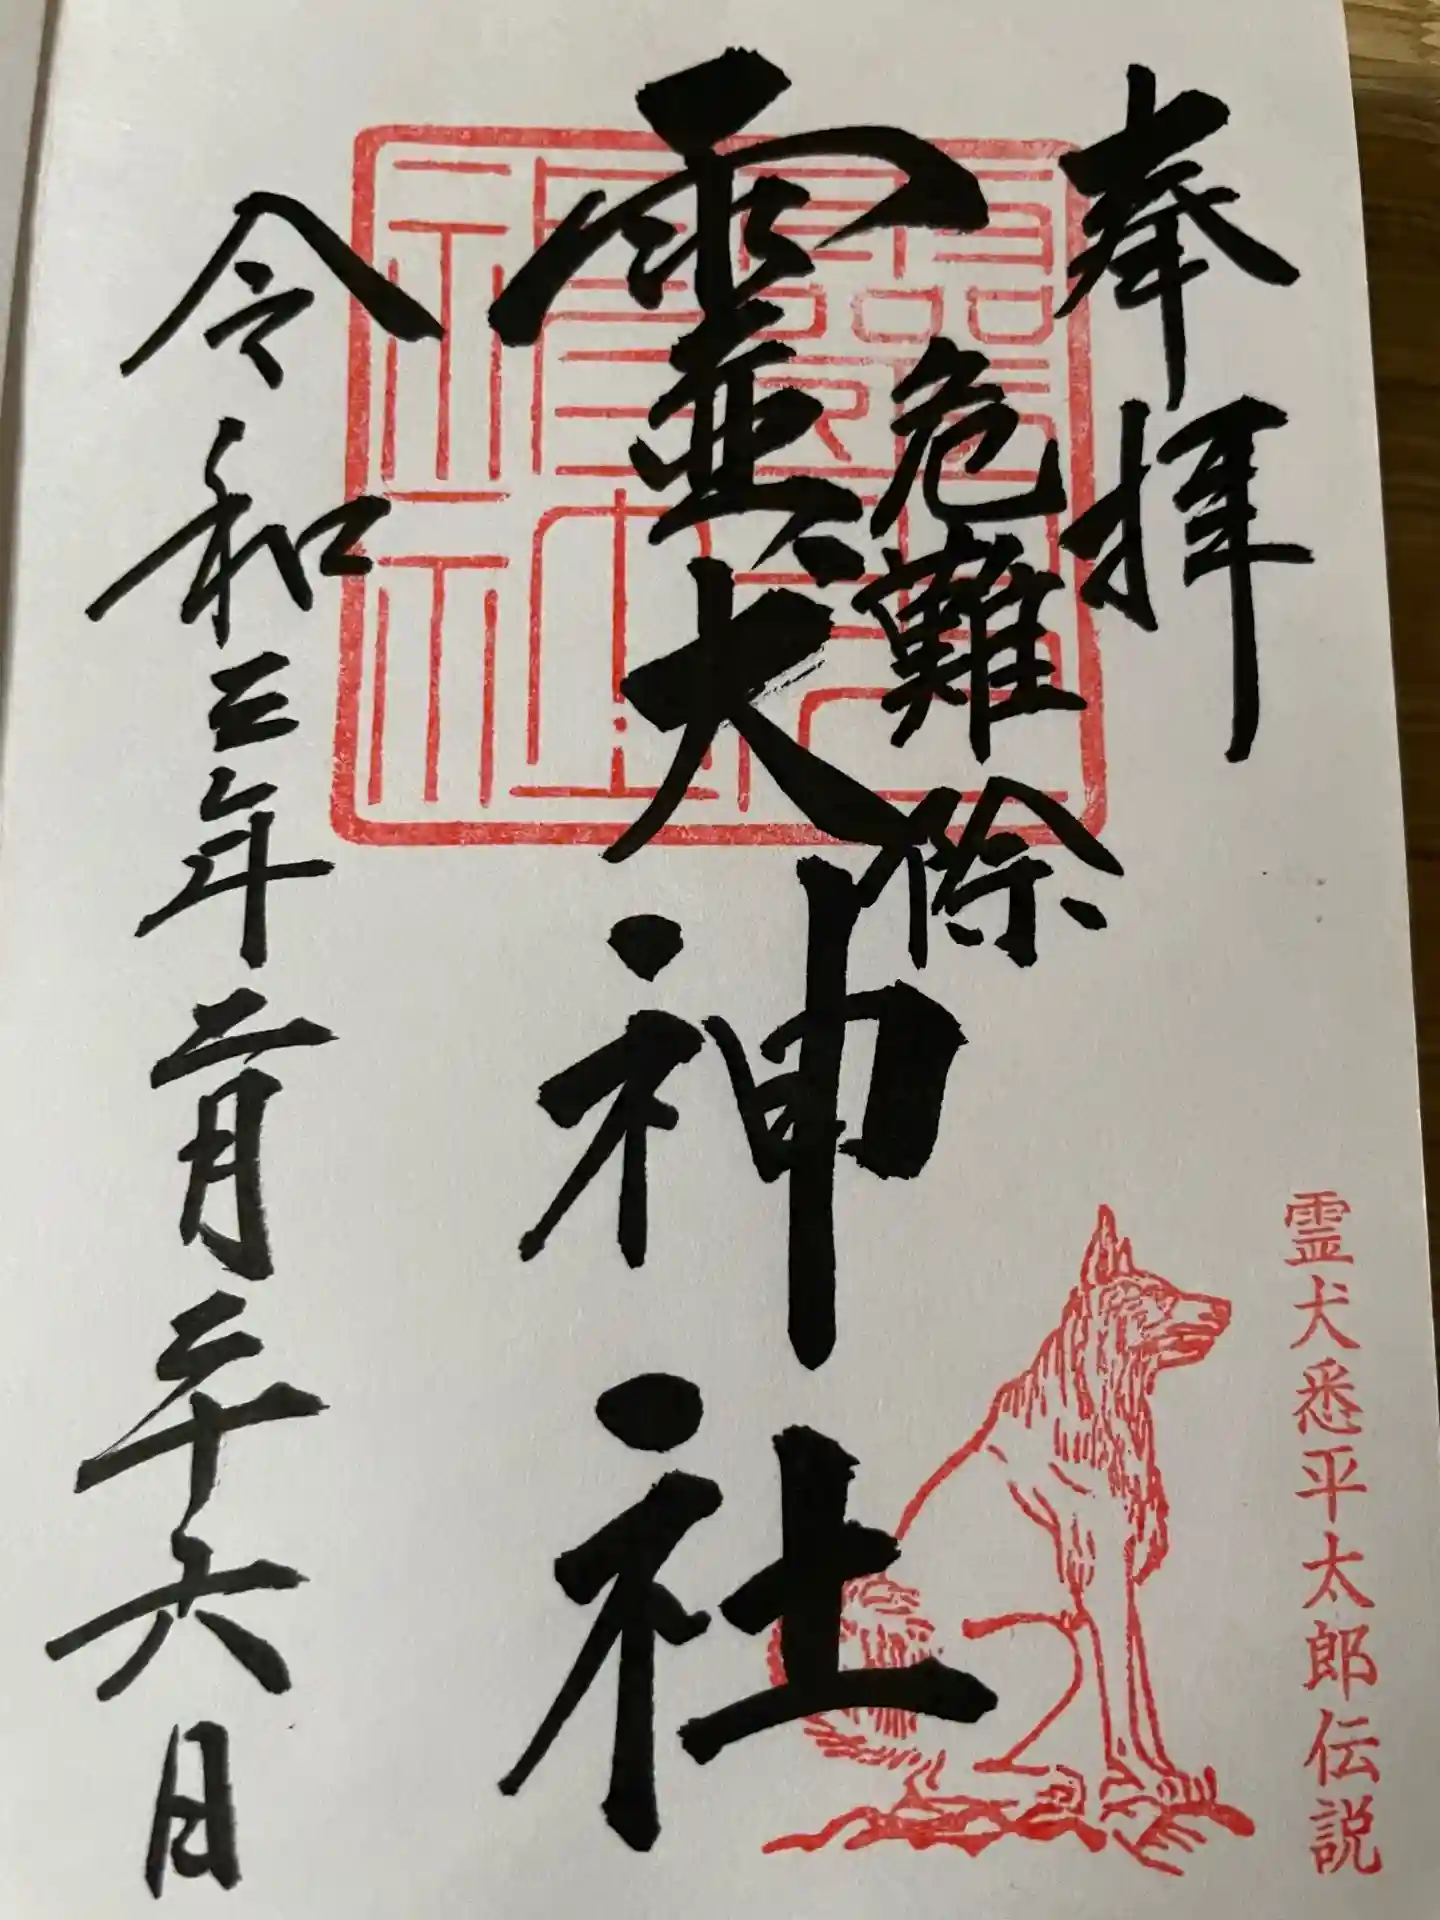 奉拝
危難除
霊犬神社
令和三年二月二十六日
霊犬悉平太郎伝説